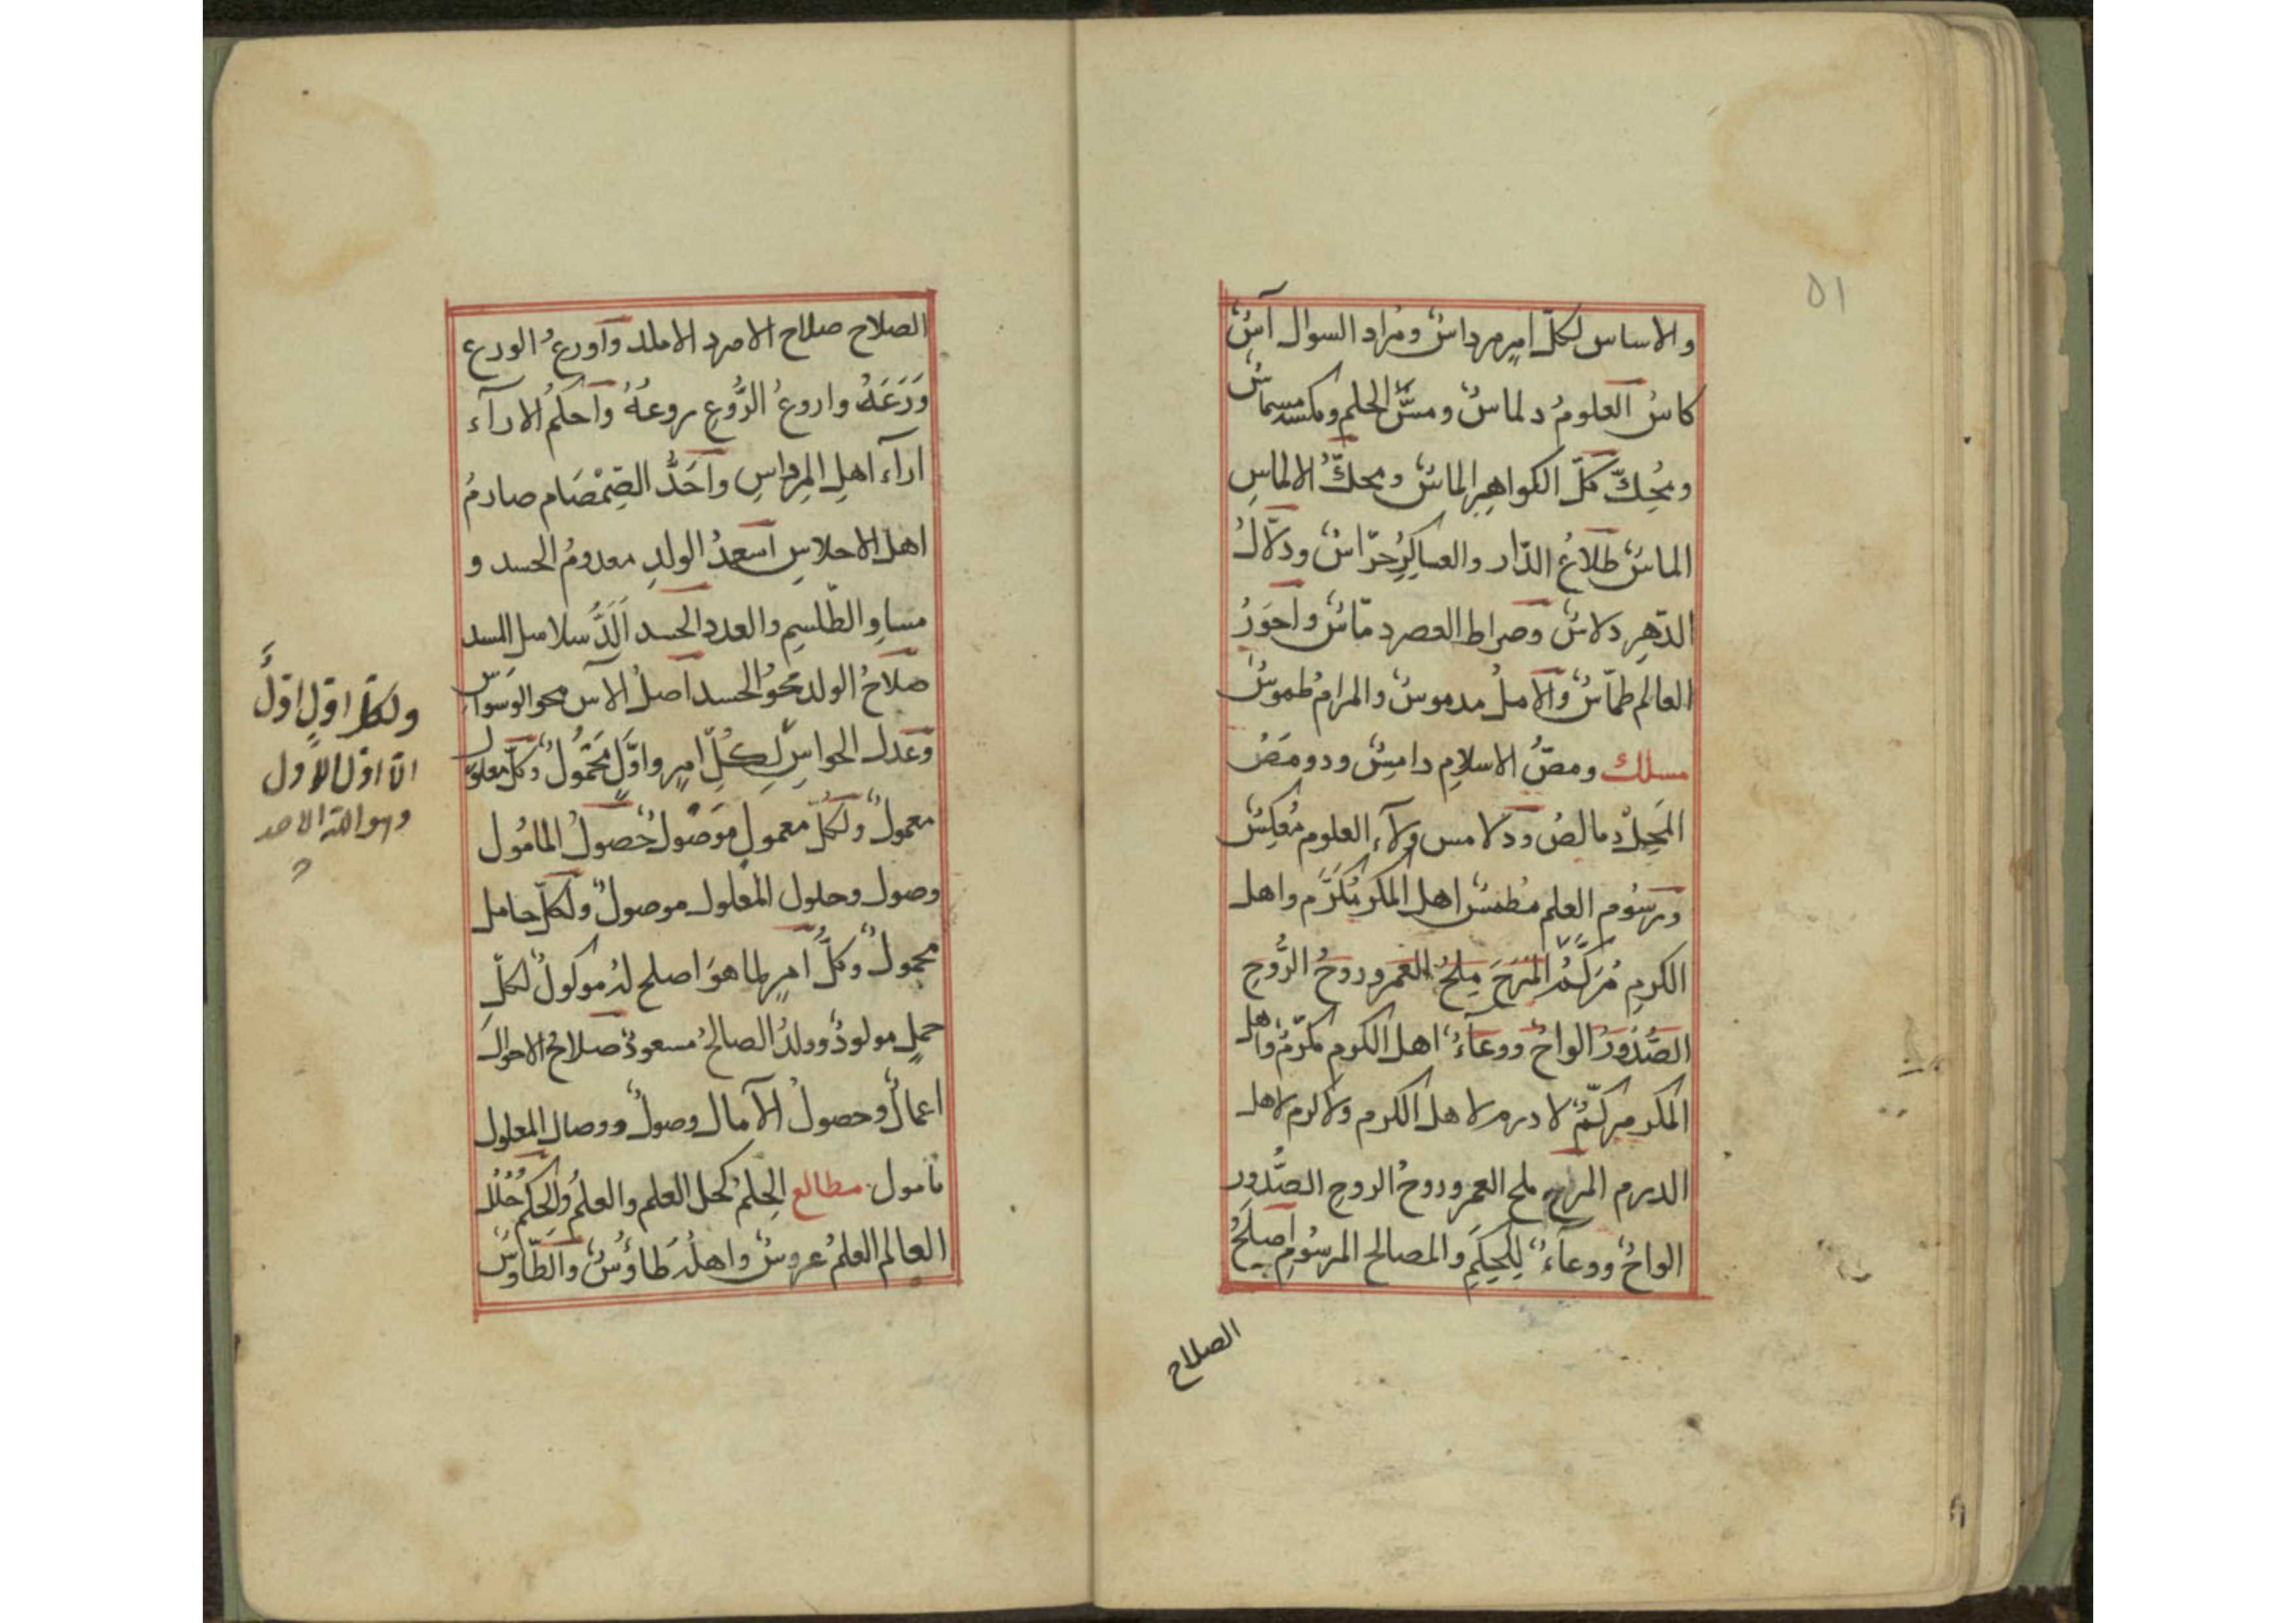 ٥١
والاساس لكلّ امرٍ مرداسٌ ومُراد السوال آسٌ
كاسُ العلومُ دلماسٌ ومسُّ الحلم ومكسد مسماسٌ
ومُحِكّ كلّ الكواهِرِ الماسٌ ومحكُّ الالماسِ
الماسٌ طلاعُ الدّار والعساكِرُ حرّاسٌ ودلّالُ
الدّهرِ دلاسٌ وصراط العصر دمّاسٌ واَحوَرُ
العالم طمّاسٌ والاملُ مدموسٌ والمرامُ طموسٌ
مسلك ومصُّ الاسلامِ دامِسٌ ودومَصُ
المَحِلْ دمالصٌ ودلامس ولآء العلوم مُعكِسٌ
ورسُوم العلم مُطمسٌ اهل المكر مُكَرَّم واهل
الكرمِ مُرَكَّمٌ المَرَحَ مِلحُ العمر وروحُ الرُّوحِ
الصُّدُورُ الواحٌ ووعآءٌ اهل الكرم مكرّمٌ واهل
المكر مركّمٌ لا درم لاهل الكرم ولا كرم لاهل
الدرم المرح ملح العمر وروحُ الروحِ الصُّدورِ
الواحٌ ووعآءٌ لِلحِكَمِ والمصالح المرسُومِ اَصلَحُ
الصلاح
الصلاح صلاح الامرد الاملد واَورعُ الورع
وَرَعَهُ واروعُ الرُّوعِ روعهُ واَحكمُ الارآء
ارآء اهلِ المِرداسِ واَحَدُّ الصِمْصَام صارمُ
اهل الاحلاسِ اَسعدُ الولدِ معدومُ الحسد و
مساوِ الطّلسمِ والعدد الحسد اَلَدُّ سلاسل المسد
صلاحُ الولد محوُ الحسد اصلُ الآس محو الوسواس
وعدل الحواسِّ لِكُلِّ امرٍ واوّلٍ مَحْمُولٌ وكلّ معلول
معمولٌ ولكلّ معمولٍ مَوصُولٌ حُصولُ المامُول
وصول وحلول المعلول موصولٌ ولكلّ حامل
محمولٌ وكلُّ اَمرٍ لما هوَ اصلح لهُ موكولٌ لكلّ
حملٍ مولودٌ وولدُ الصالحُ مسعودٌ صلاحُ الاحوالِ
اعمالٌ وحصولُ الآمال وصولٌ ووصال المعلول
مامول مطالع الحِلمُ كحل العلم والعلمُ والحِكمُ حُلَلُ
العالم العلمُ عروسٌ واهلُه طاوُسٌ والطّاوسُ
ولكلّ اوّلٍ اوّلٌ
الّا اوّل الاوّل
وهو الله الاحد